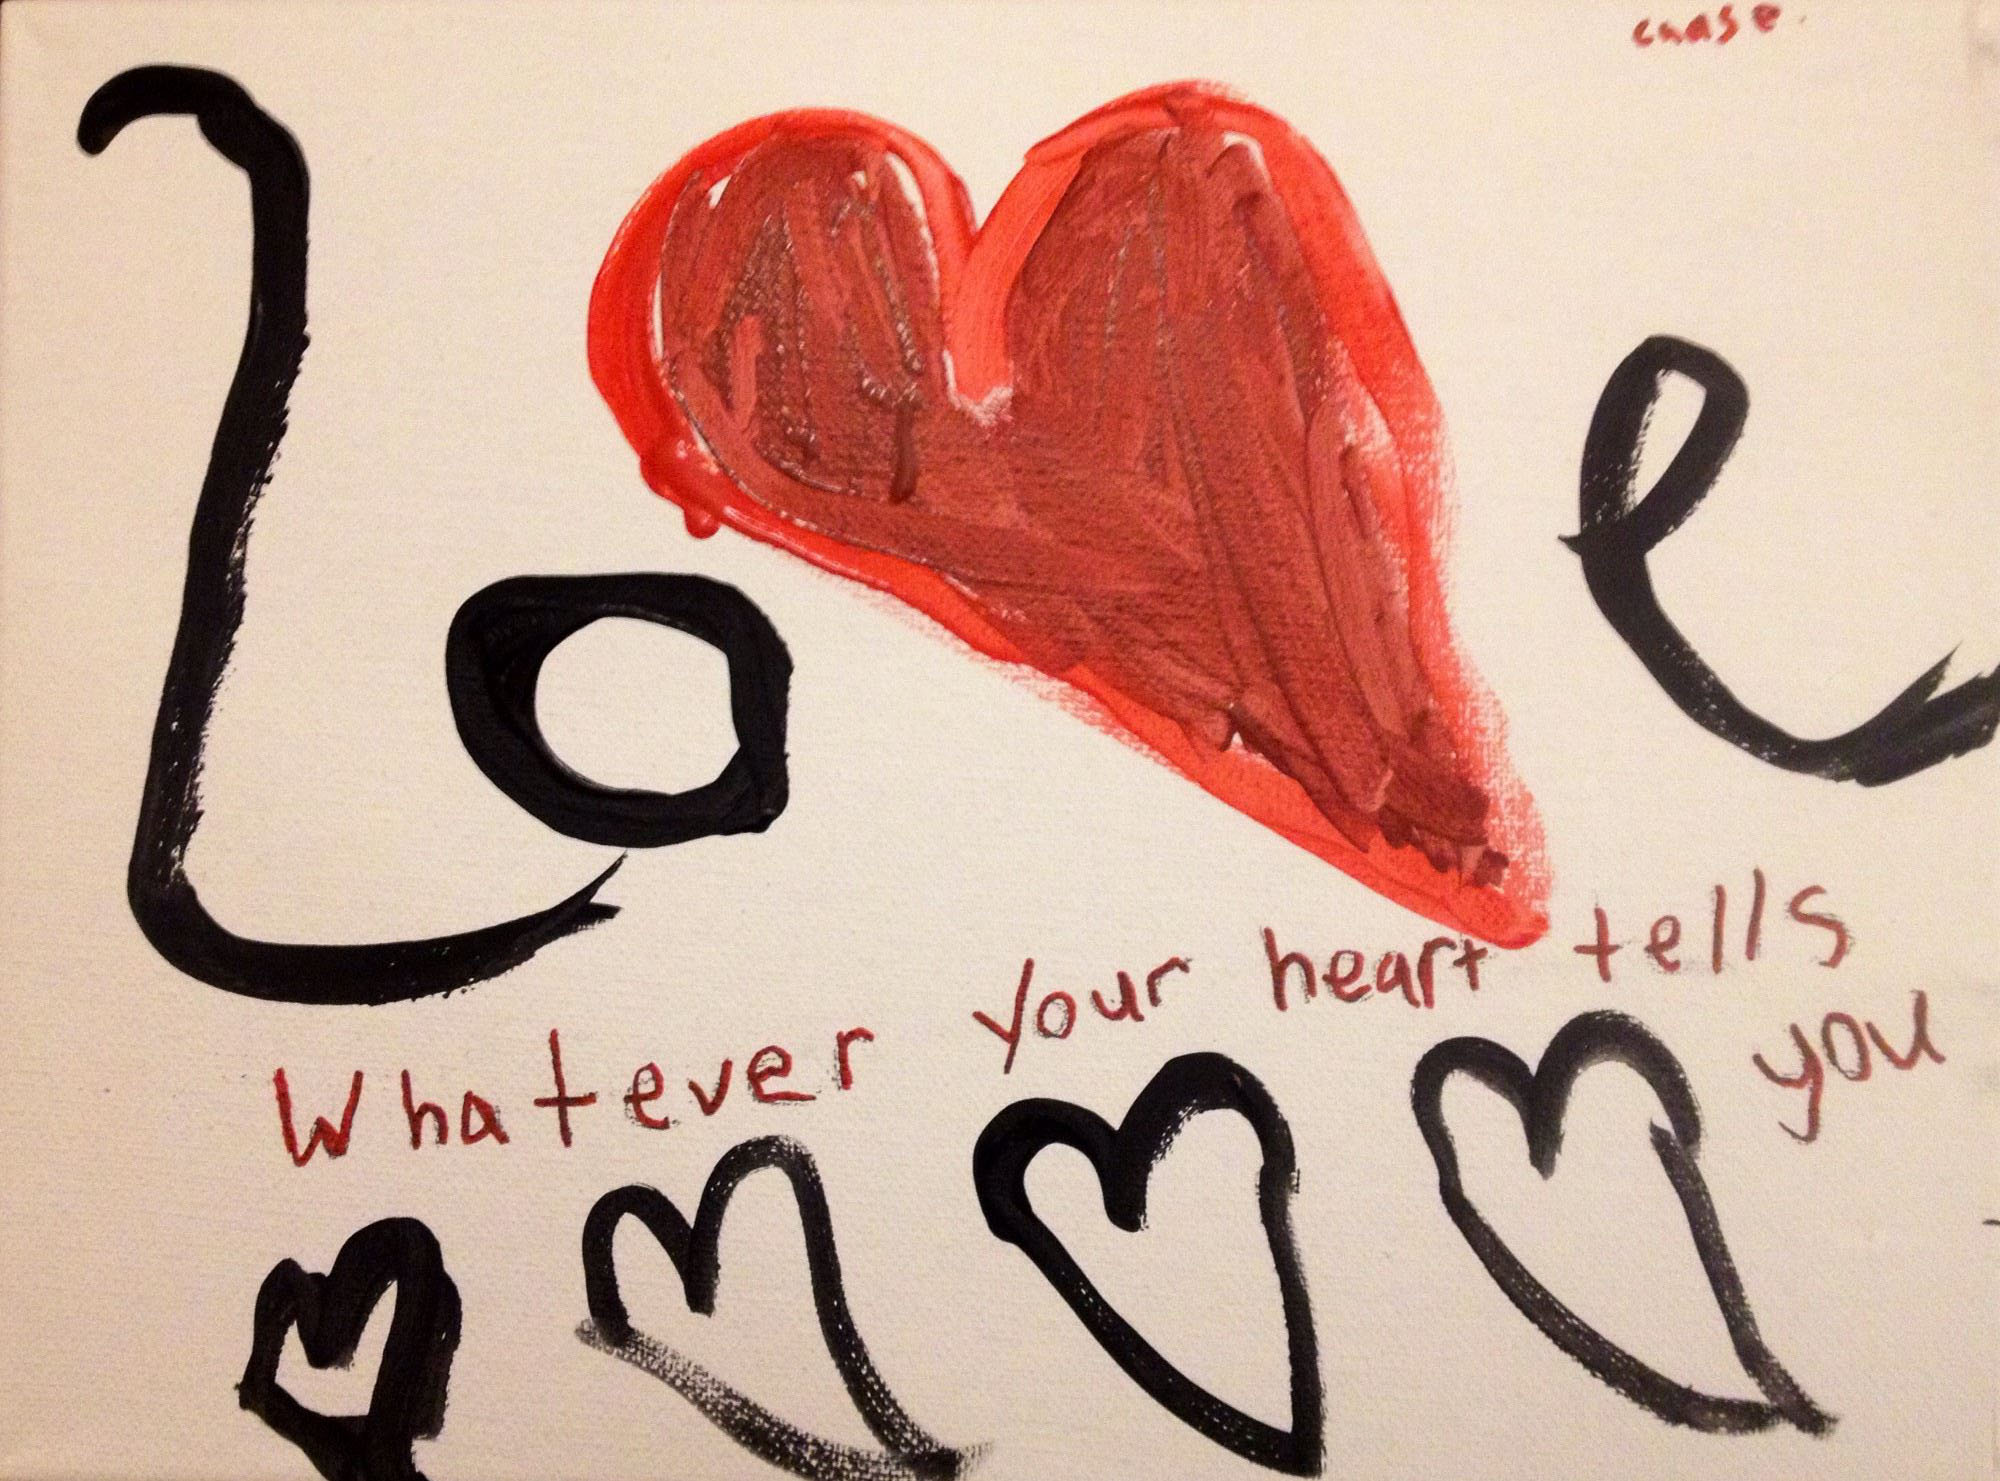 chase.
Lo❤e
Whatever your heart tells
you